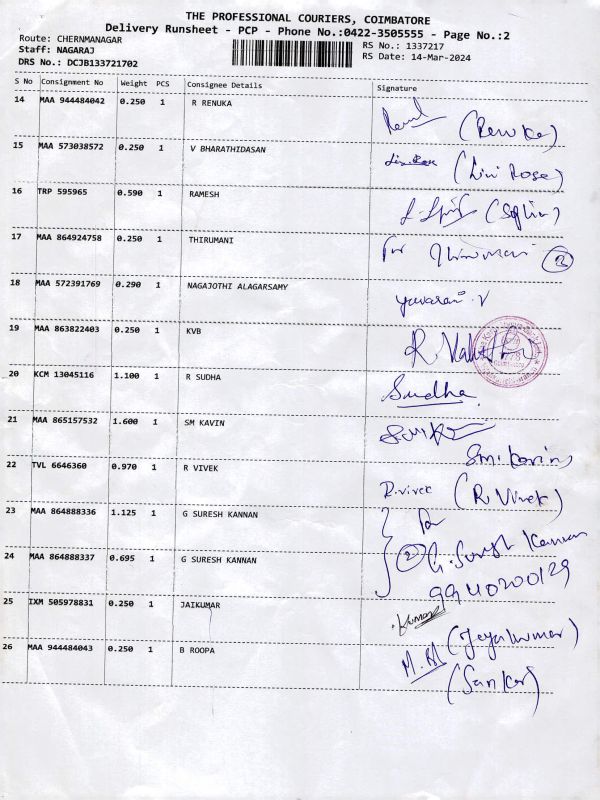 THE PROFESSIONAL COURIERS, COIMBATORE
Delivery Runsheet - PCP - Phone No.:0422-3505555 - Page No.:2
Route: CHERNMANAGAR
RS No.: 1337217
Staff: NAGARAJ
RS Date: 14-Mar-2024
DRS No.: DCJB133721702
S No Consignment No Weight PCS Consignee Details Signature
14 MAA 944484042 0.250 1 R RENUKA (Renuka)
15 MAA 573038572 0.250 1 V BHARATHIDASAN (Lini Rose)
16 TRP 595965 0.590 1 RAMESH
17 MAA 864924758 0.250 1 THIRUMANI For Thirumani
18 MAA 572391769 0.290 1 NAGAJOTHI ALAGARSAMY yuvarani.V
19 MAA 863822403 0.250 1 KVB
20 KCM 13045116 1.100 1 R SUDHA Sudha
21 MAA 865157532 1.600 1 SM KAVIN
Sm. Kavin
22 TVL 6646360 0.970 1 R VIVEK R.vivek (R. Vivek)
23 MAA 864888336 1.125 1 G SURESH KANNAN For
24 MAA 864888337 0.695 1 G SURESH KANNAN 2 G. Suresh Kannan
9940200129
25 IXM 505978831 0.250 1 JAIKUMAR Kumar
(Jeyakumar)
26 MAA 944484043 0.250 1 B ROOPA
(Sankar)